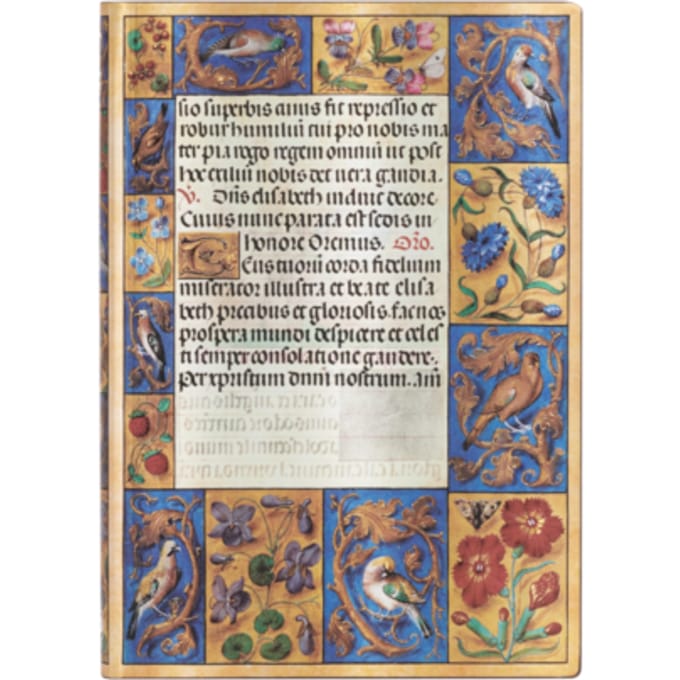 sio superbis cuius fit repressio et
robur humiliū cui pro nobis ma
ter pia rogo regem omniū ut post
hoc exiliū nobis det uera gaudia.
V. elisabeth decore.
Cuius nunc parata est sedis in
honore Oremus. Orō.
Eus tuorū corda fidelium
miserator illustra et beate elisa
beth precibus et gloriosis fac nos
prospera mundi despicere et celes
ti semper consolatione gaudere.
Per xpristum dnm̄ nostrum. am̄